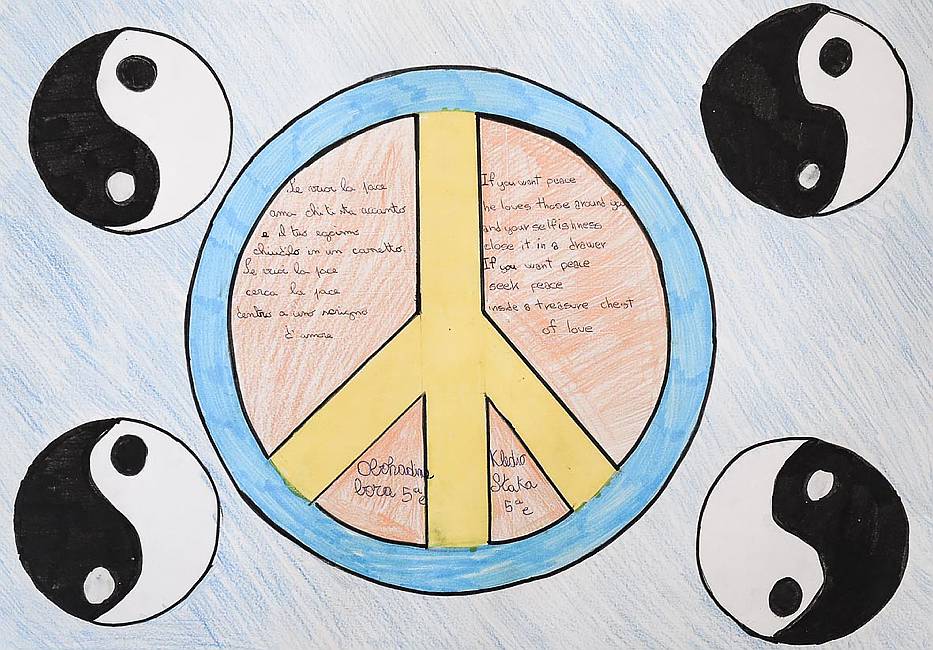 Se vuoi la pace
ama chi ti sta accanto
e il tuo egoismo
chiudilo in un cassetto.
Se vuoi la pace
cerca la pace
dentro a uno scrigno
d'amore
If you want peace
he loves those around you
and your selfishness
close it in a drawer
If you want peace
seek peace
inside a treasure chest
of love
bora 5ª e
Staka
5ª e